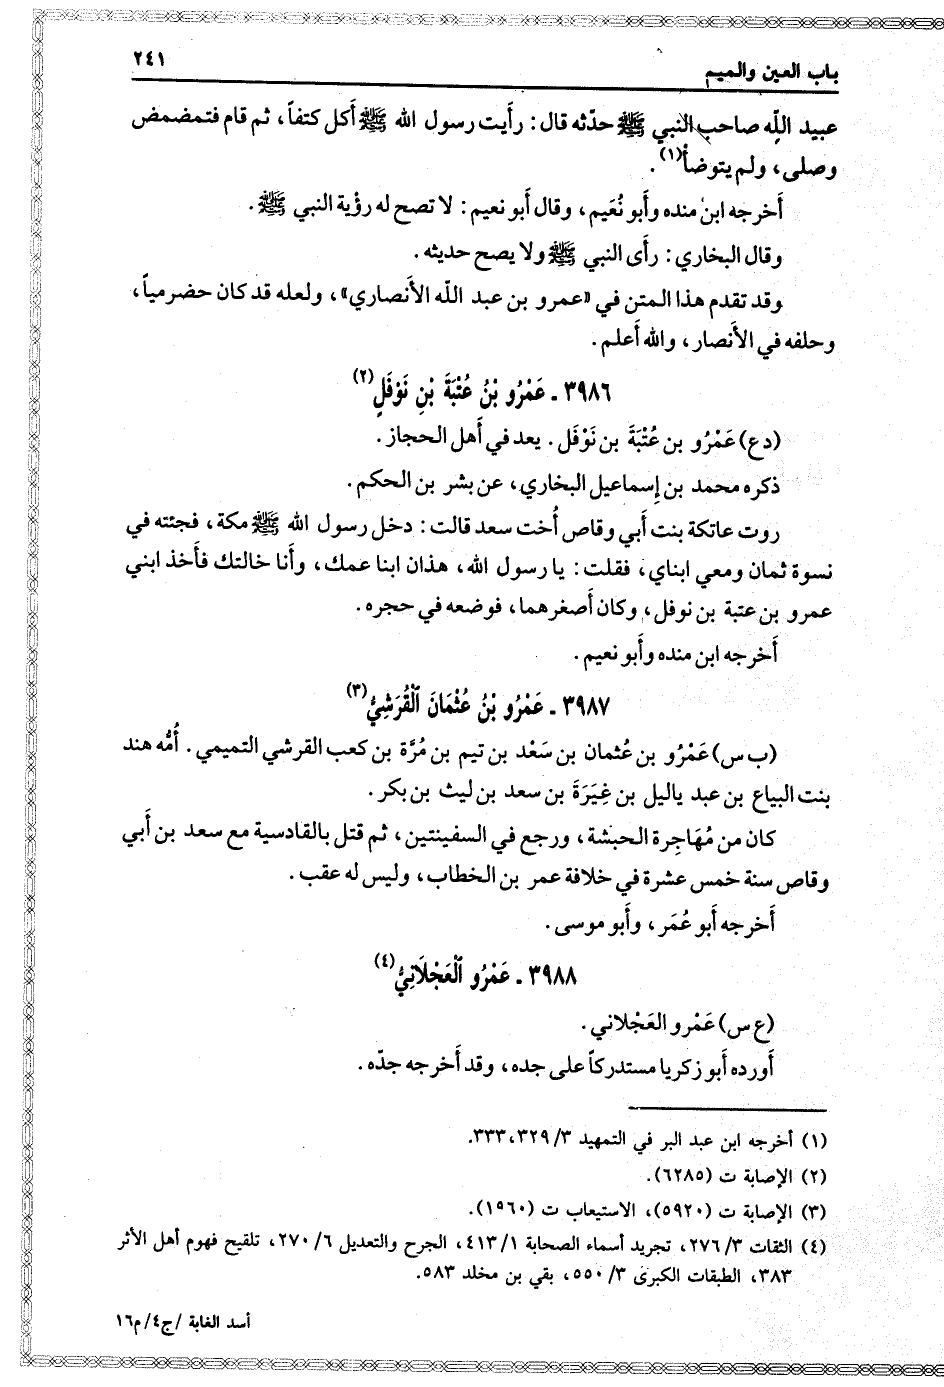 باب العين والميم ٢٤١
عبيد اللّه صاحب النبي ﷺ حدّثه قال: رأَيت رسول الله ﷺ أَكل كتفاً، ثم قام فتمضمض
وصلى، ولم يتوضأ(١).
أَخرجه ابن منده وأَبو نُعَيم، وقال أَبو نعيم: لا تصح له رؤية النبي ﷺ.
وقال البخاري: رأَى النبي ﷺ ولا يصح حديثه.
وقد تقدم هذا المتن في «عمرو بن عبد اللّه الأَنصاري»، ولعله قد كان حضرمياً،
وحلفه في الأَنصار، والله أَعلم.
٣٩٨٦ ـ عَمْرُو بْنُ عُتْبَةَ بْنِ نَوْفَلٍ(٢)
(دع) عَمْرُو بن عُتْبَةَ بن نَوْفَل. يعد في أَهل الحجاز.
ذكره محمد بن إِسماعيل البخاري، عن بشر بن الحكم.
روت عاتكة بنت أَبي وقاص أُخت سعد قالت: دخل رسول الله ﷺ مكة، فجئته في
نسوة ثمان ومعي ابناي، فقلت: يا رسول الله، هذان ابنا عمك، وأَنا خالتك فأَخذ ابني
عمرو بن عتبة بن نوفل، وكان أَصغرهما، فوضعه في حجره.
أَخرجه ابن منده وأَبو نعيم.
٣٩٨٧ ـ عَمْرُو بْنُ عُثْمَانَ ٱلْقُرَشِيُّ(٣)
(ب س) عَمْرُو بن عُثمان بن سَعْد بن تيم بن مُرَّة بن كعب القرشي التميمي. أُمُّه هند
بنت البياع بن عبد ياليل بن غِيَرَةَ بن سعد بن ليث بن بكر.
كان من مُهَاجِرة الحبشة، ورجع في السفينتين، ثم قتل بالقادسية مع سعد بن أَبي
وقاص سنة خمس عشرة في خلافة عمر بن الخطاب، وليس له عقب.
أَخرجه أَبو عُمَر، وأَبو موسى.
٣٩٨٨ ـ عَمْرُو ٱلْعَجْلَانِيُّ(٤)
(ع س) عَمْرو العَجْلاني.
أَورده أَبو زكريا مستدركاً على جده، وقد أَخرجه جدّه.
(١) أخرجه ابن عبد البر في التمهيد ٣/ ٣٢٩، ٣٣٣.
(٢) الإصابة ت (٦٢٨٥).
(٣) الإصابة ت (٥٩٢٠)، الاستيعاب ت (١٩٦٠).
(٤) الثقات ٣/ ٢٧٦، تجريد أسماء الصحابة ١/ ٤١٣، الجرح والتعديل ٦/ ٢٧٠، تلقيح فهوم أهل الأثر
٣٨٣، الطبقات الكبرى ٣/ ٥٥٠، بقي بن مخلد ٥٨٣.
أسد الغابة /ج٤/ م١٦